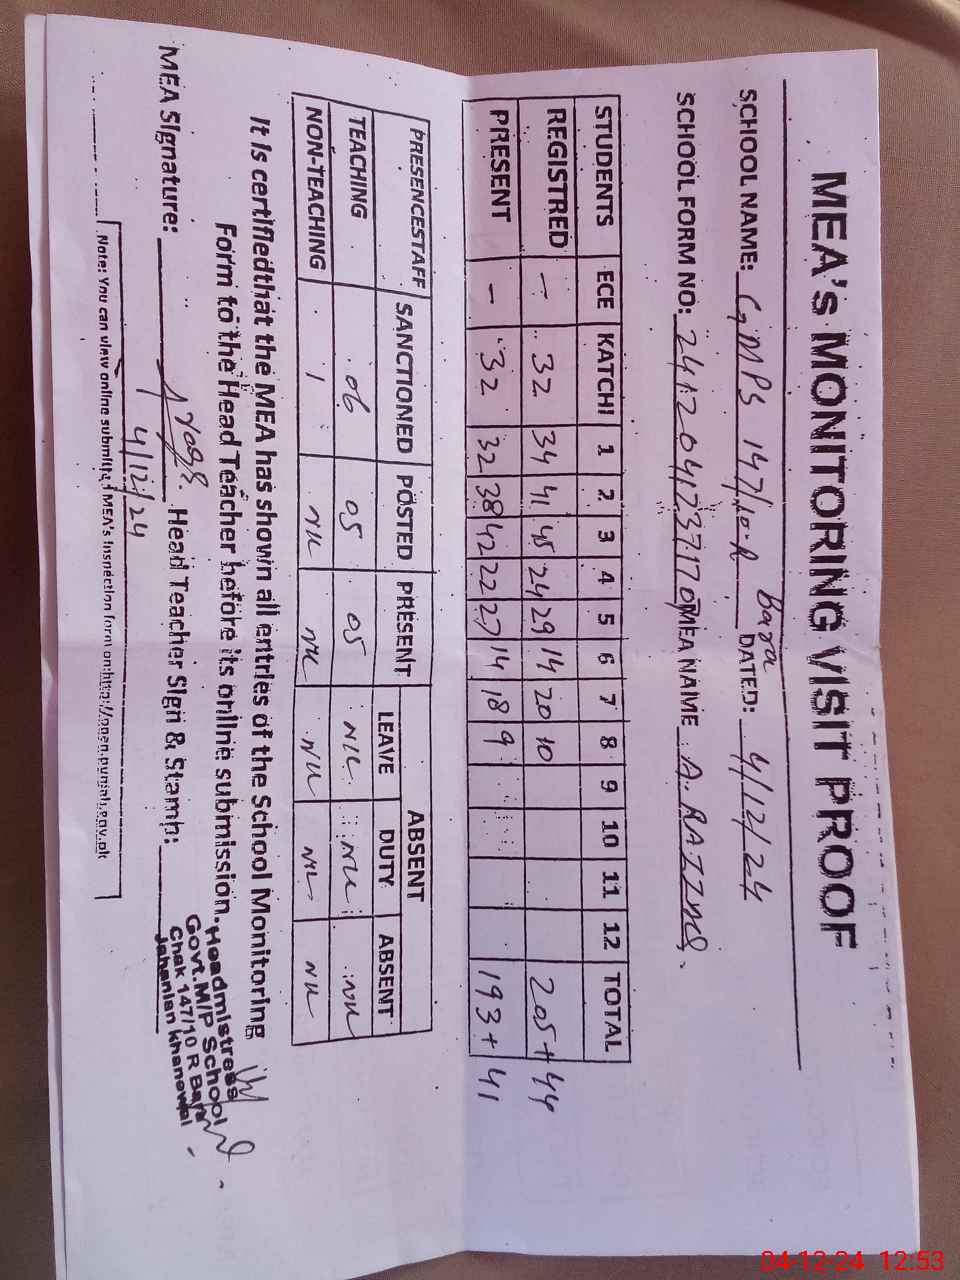 MEA's MONITORING VISIT PROOF
SCHOOL NAME: GMPS 147/10-R Bara DATED: 4/12/24
SCHOOL FORM NO: MEA NAME A.
STUDENTS ECE KATCHI 1 2 3 4 5 6 7 8 9 10 11 12 TOTAL
REGISTRED - 32 34 41 45 24 29 14 20 10 205+44
PRESENT - 32 32 38 42 22 27 14 18 9 193+41
PRESENCESTAFF SANCTIONED POSTED PRESENT ABSENT
LEAVE DUTY ABSENT
TEACHING 06 05 05 NIL NIL NIL
NON-TEACHING 1 NIL NIL NIL NIL NIL
It is certifiedthat the MEA has shown all entries of the School Monitoring
Form to the Head Teacher before its onilne submission.
MEA Signature: Head Teacher Sign & Stamh:
4/12/24
Headmistress
Govt.M/P School
Chak 147/10 R Bara
Jahanian khanewal
Note: You can view online submitted MEA's Inspection form on:http://open.punjab.gov.pk
04-12-24 12:53